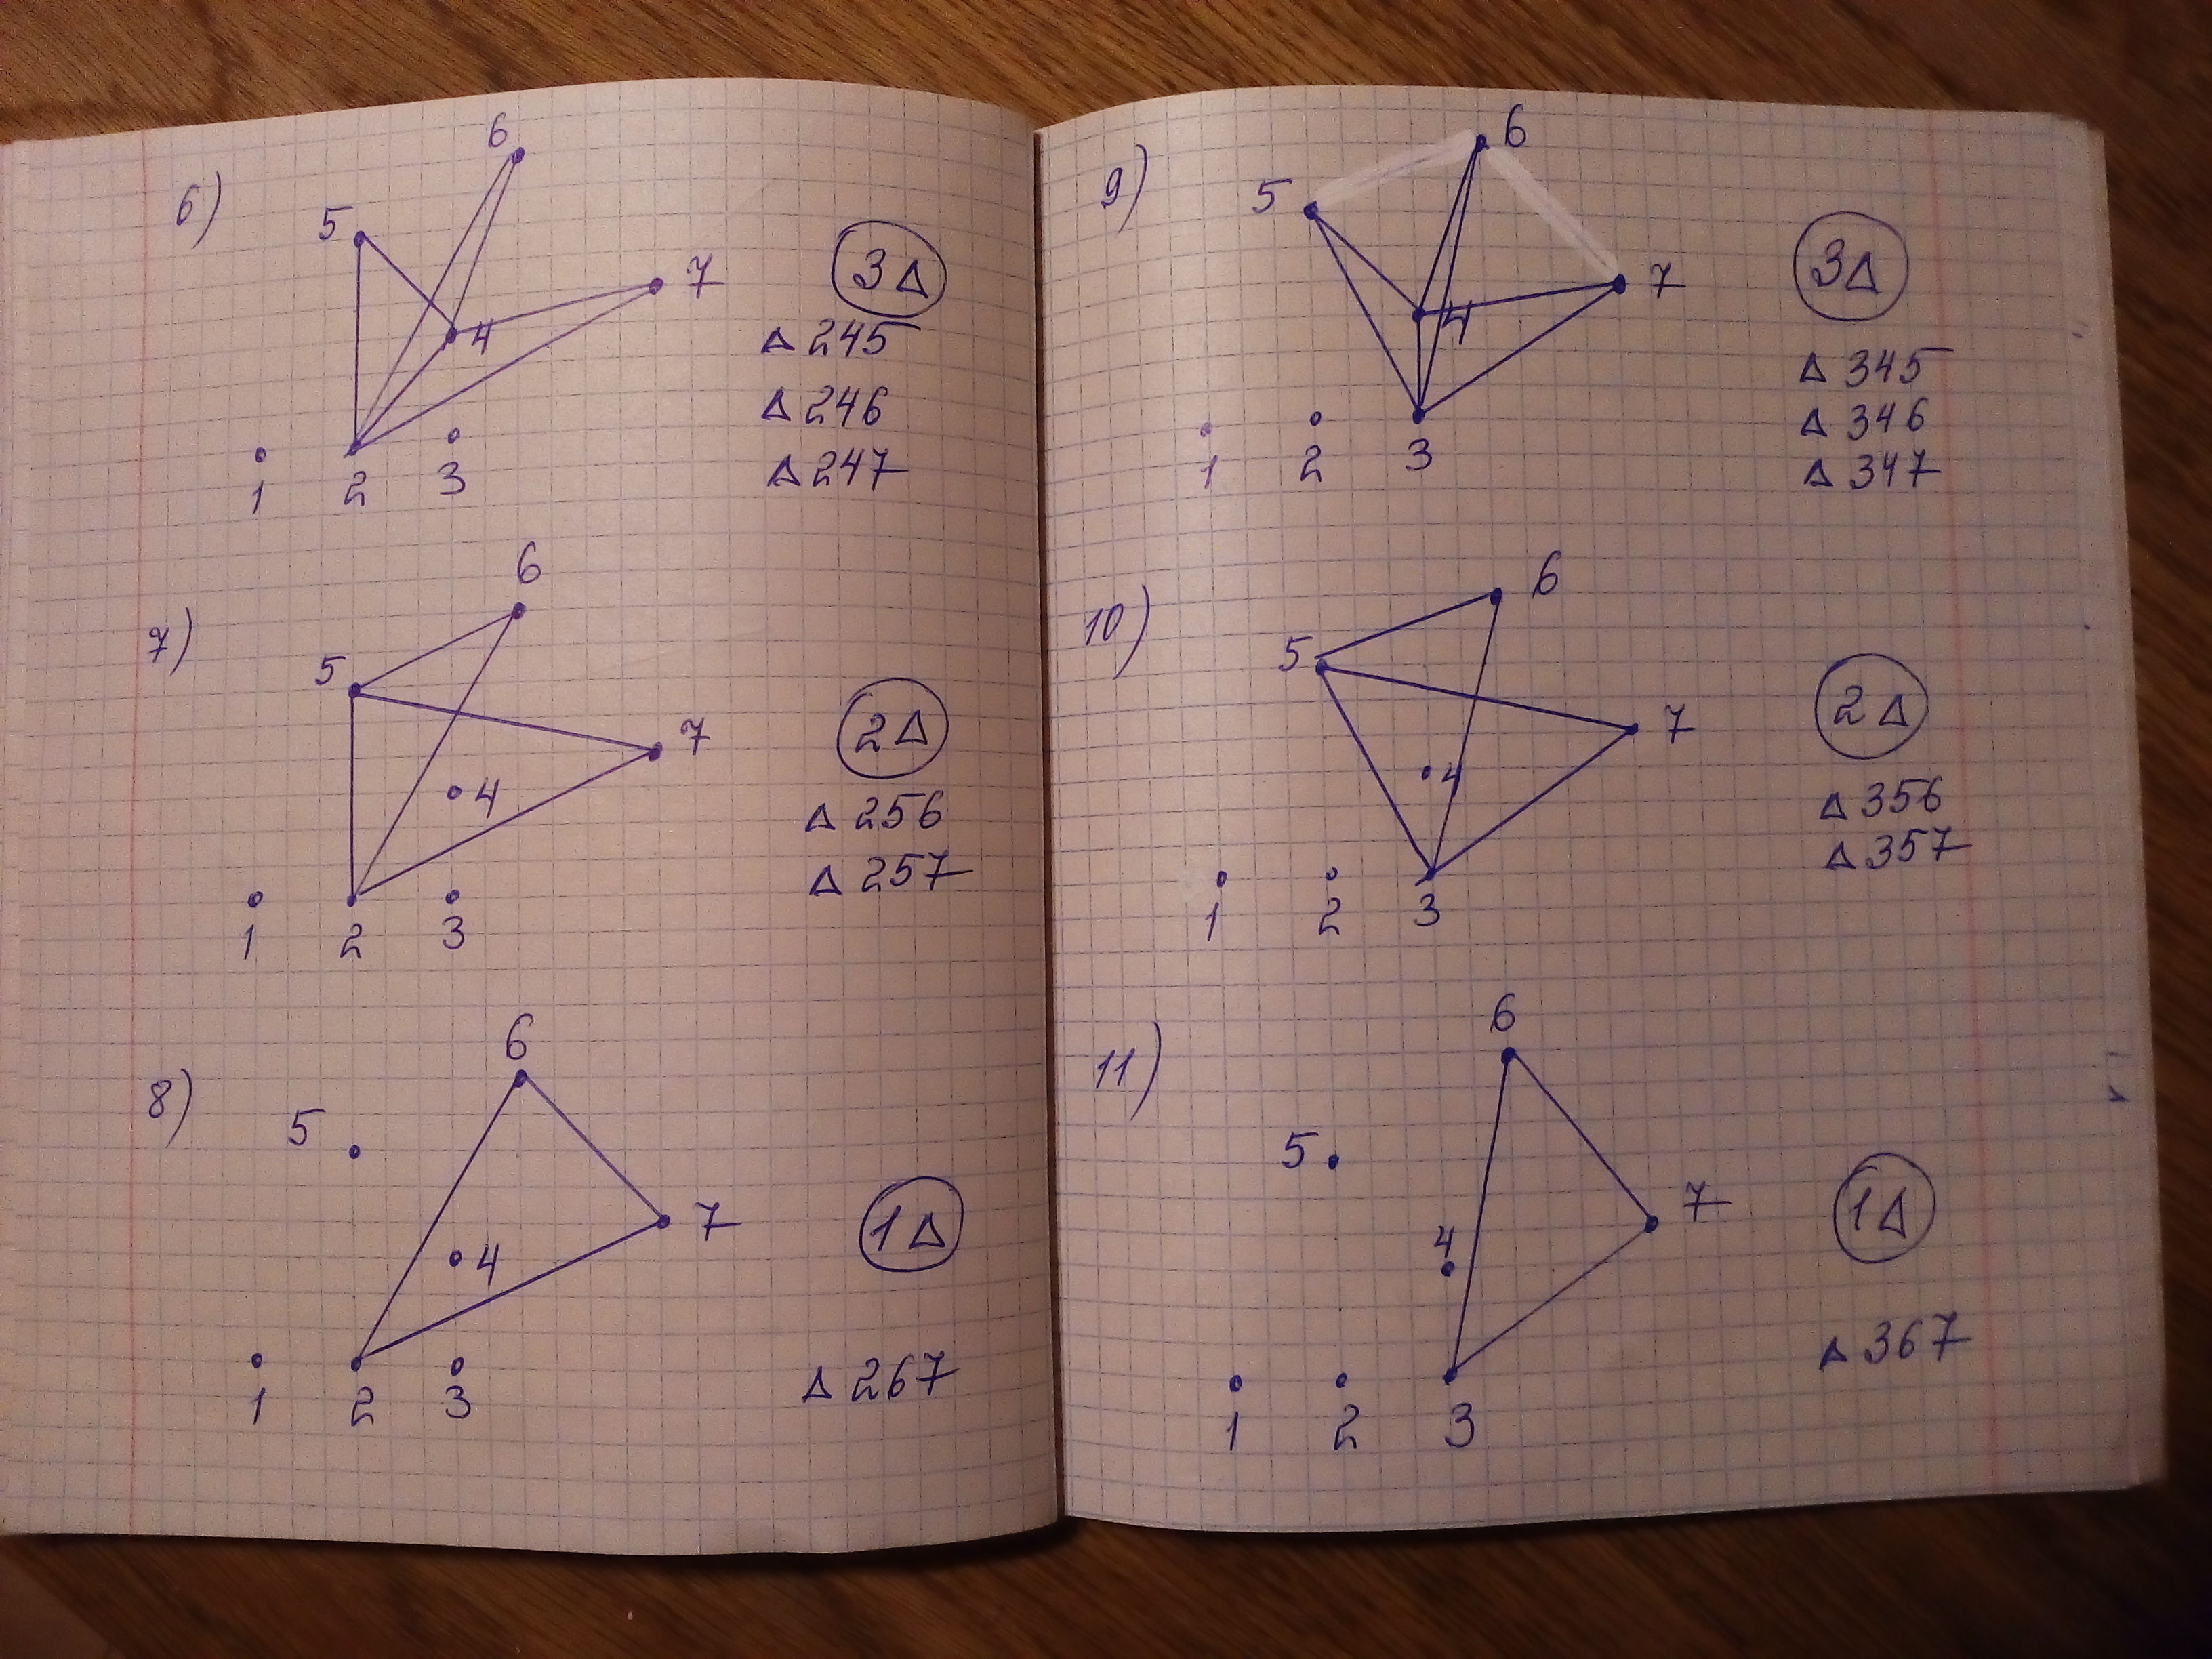 6)
6
5
7
4
1 2 3
3Δ
Δ 245
Δ 246
Δ 247
7)
6
5
7
4
1 2 3
2Δ
Δ 256
Δ 257
8)
6
5
7
4
1 2 3
1Δ
Δ 267
9)
6
5
7
4
1 2 3
3Δ
Δ 345
Δ 346
Δ 347
10)
6
5
7
4
1 2 3
2Δ
Δ 356
Δ 357
11)
6
5
7
4
1 2 3
1Δ
Δ 367